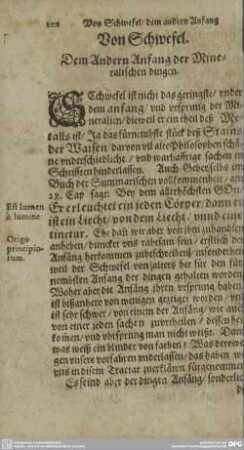 102 Von Schwefel/ dem andern Anfang
Von Schwefel.
Dem Andern Anfang der Mine-
ralischen dingen.
SChwefel ist nicht das geringste/ vnder
dem anfang/ vnd vrsprung der Mi-
neralien/ dieweil er ein theil deß Me-
talls ist/ Ja das fürnembste stück deß Stains
der Weisen/ daruon vil alte Philosophen schö-
ne vnderschidliche/ vnd warhafftige sachen in
Schrifften hinderlassen. Auch Geber selbs im
Buch der Summarischen vollkommenheit/ am
28. Cap sagt: Bey dem allerhöchsten GOtt/
Er erleuchtet ein jeden Cörper/ dann er
Est lumen
à lumine
ist ein Liecht/ von dem Liecht/ vnnd ein
tinctur. Ehe daß wir aber von jhm zuhandlen
Origo
principio-
rum.
anheben/ duncket vns rahtsam sein/ erstlich den
Anfang herkommen zubeschreiben/ insonderheit
weil der Schwefel von jalters her für den für-
nemsten Anfang der dingen gehalten worden
Woher aber die Anfäng jhren vrsprung haben
ist bißanhero von wenigen gezeiget worden/ vnd
ist sehr schwer/ von einem der Anfäng/ wie auch
von einer jeden sach zu vrtheilen/ dessen her-
kommen/ vnd vhrsprung man nicht weißt. Dann
was weiß ein blinder von farben/
gen vnsere vorfahren vnderlassen/ das haben wir
vns in disem Tractat zuerklären fürgenommen
Es seind aber der dingen Anfäng/ sonderlich